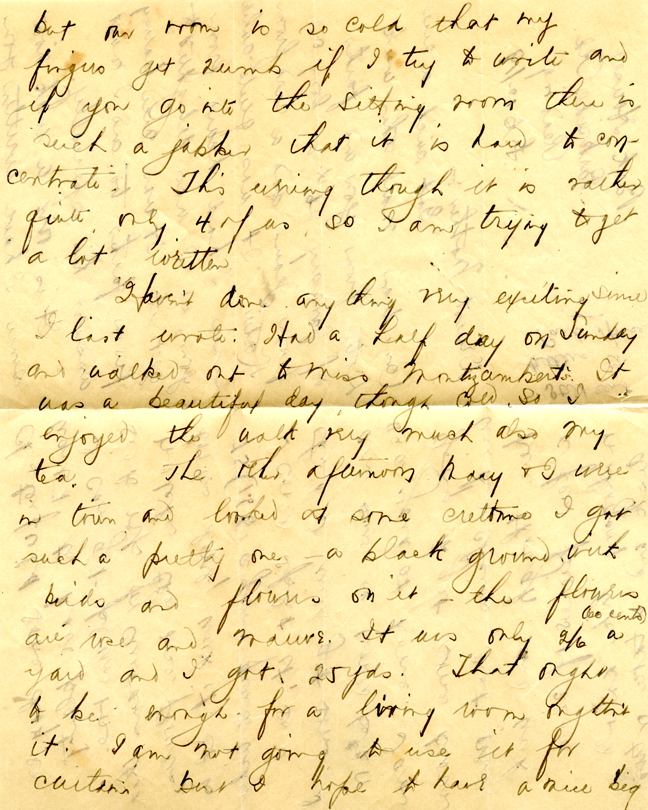 but our room is so cold that my
fingers get numb if I try to write and
if you go into the sitting room there is
such a jabber that it is hard to con-
centrate. This evening though it is rather
quite, only 4 of us so I am trying to get
a lot written
Haven't done anything very exciting since
I last wrote. Had a half day on Sunday
and walked out to Miss Montizambert's. It
was a beautiful day, though cold, so I
enjoyed the walk very much also my
tea. The other afternoon Mary & I were
in town and looked at some crettone I got
such a pretty one - a black ground with
birds and flowers on it - the flowers
are rose and mauve. It was only 2/6 (60 cents) a
yard and I got 25 yds. That ought
to be enough for a living room oughtn't
it. I am not going to use it for
curtains but I hope to have a nice big